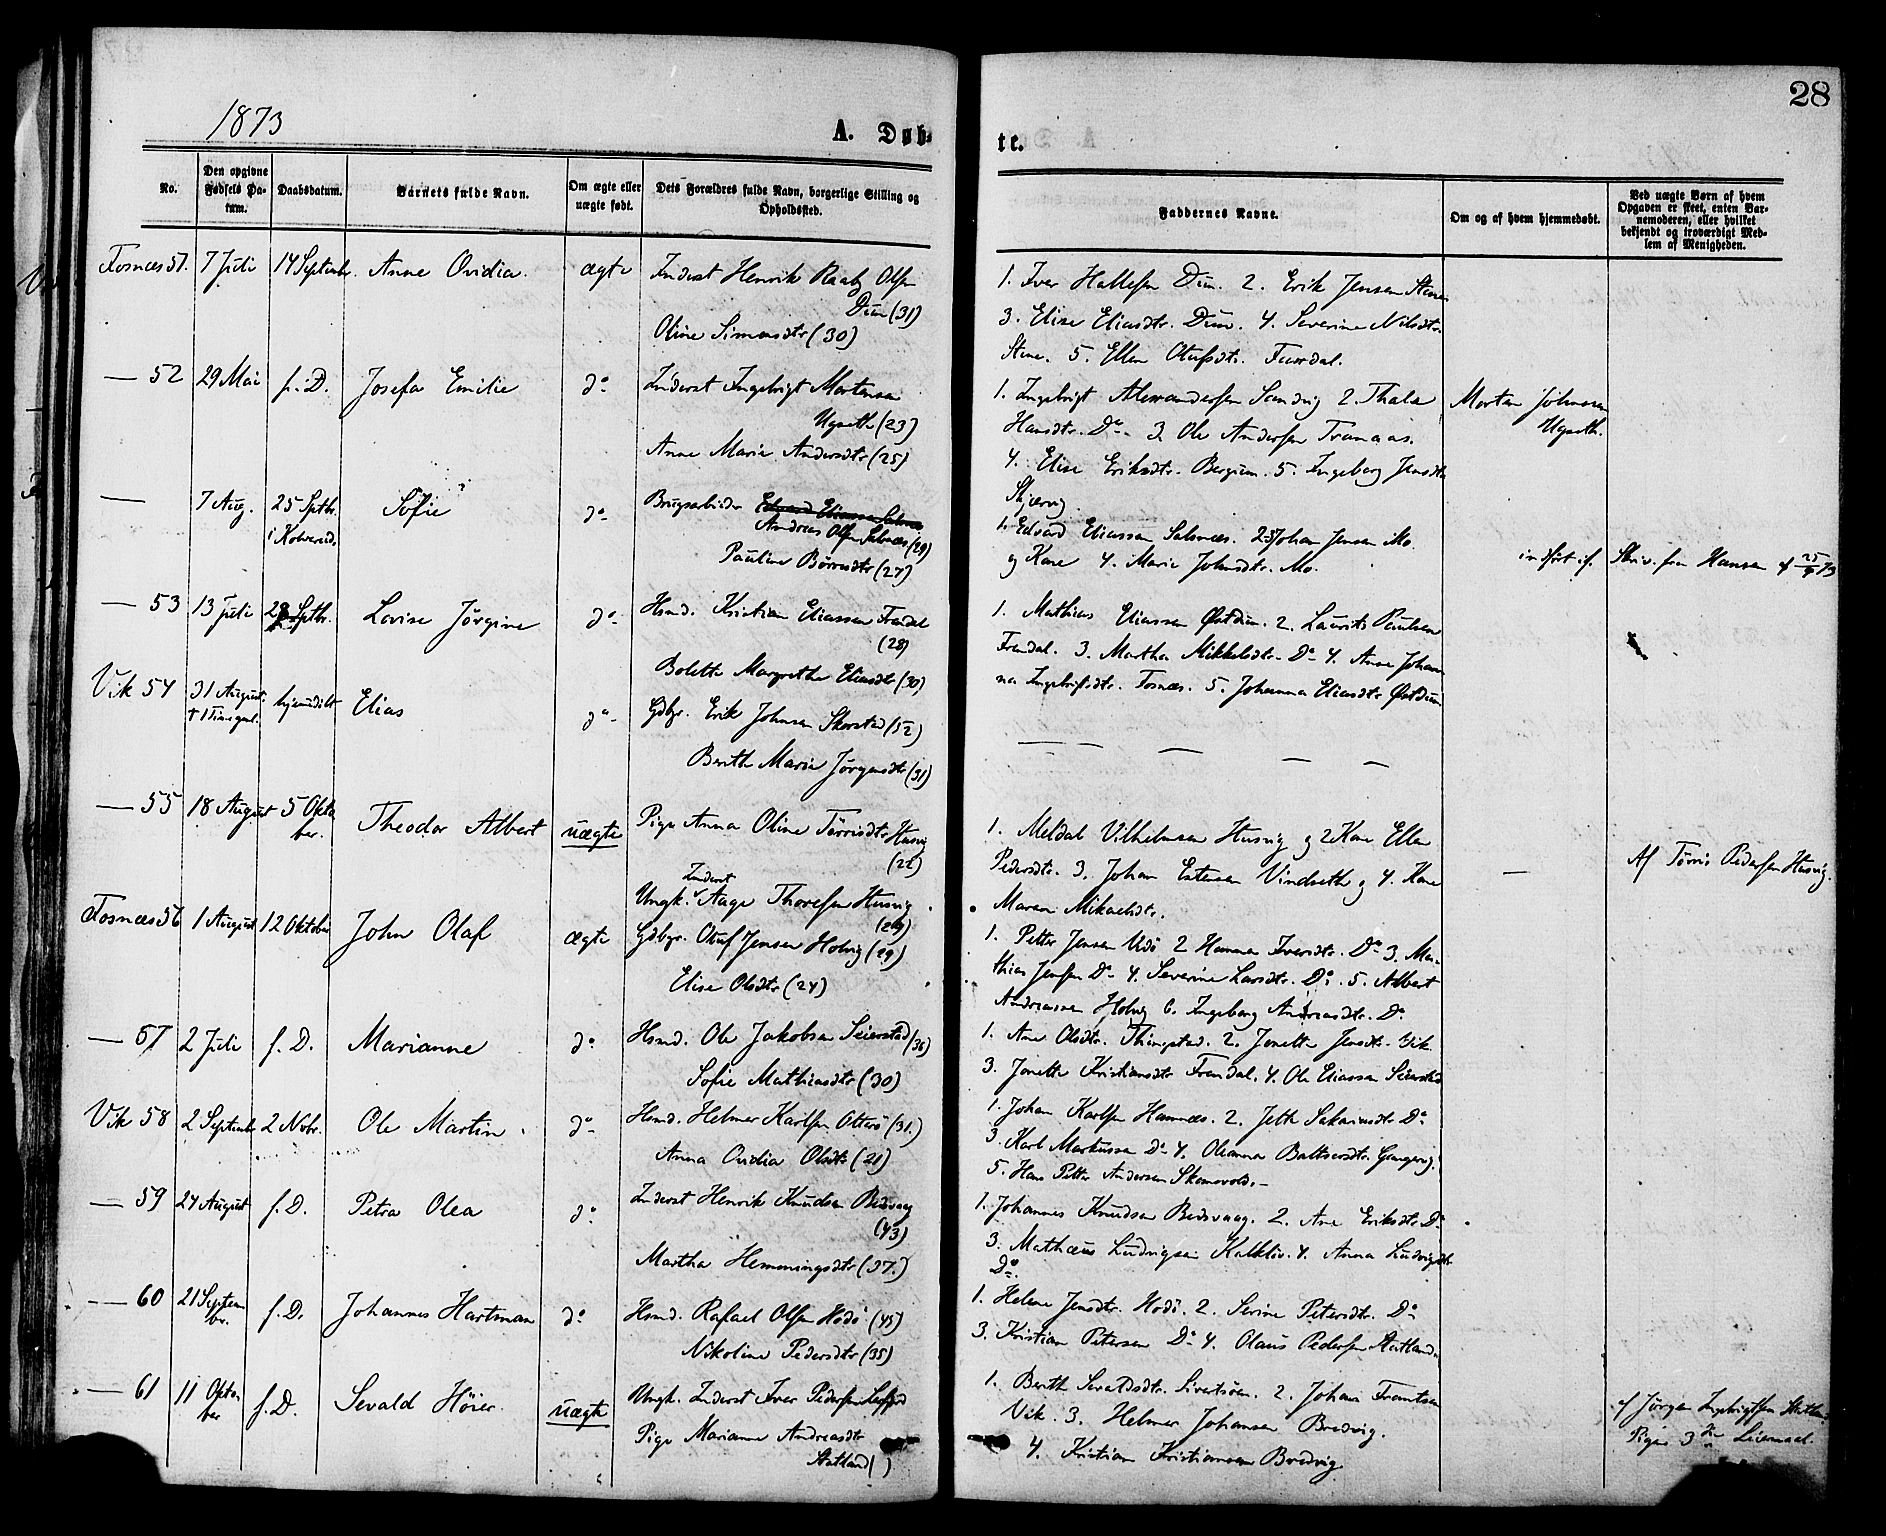 28
1873
A. Døb-
te.
No.
Den opgivne Fødsels Da-tum.
Daabsdatum.
Barnets fulde Navn.
Om ægte eller uægte født.
Dets Forældres fulde Navn, borgerlige Stilling og Opholdssted.
Faddernes Navne.
Om og af hvem hjemmedøbt.
Ved uægte Børn af hvem Opgaven er skeet, enten Bar-nemoderen, eller hvilket bekjendt og troværdigt Med-lem af Menigheden.
Fosnæs 51. 7 Juli 14 Septembr. Anne Ovidia. ægte Inderst Henrik Raaby Olsen
Duun (31)
Oline Simonsdtr (30)
1. Iver Hallesen Duun. 2. Erik Jensen Stene
3. Elise Eliasdtr. Duun. 4. Severine Nilsdtr.
Stene. 5. Ellen Olufsdtr. Faurdal.
— 52 29 Mai f. D. Josefa Emilie do Inderst Ingebrigt Mortensen
Ugseth (23)
Anne Marie Andersdtr (25)
1. Ingebrigt Alexandersen Sandvig 2. Thala
Hansdtr. Do. 3. Ole Andersen Tranaas.
4. Elise Eriksdtr. Bergum. 5. Ingeborg Jensdtr
Skjærvig.
Morten Johnsen
Ugseth.
— 7 Aug. 25 Sptbr. i Kolvereid. Sofie do Brugsarbeider Edvard Eliassen Salsnæs
Andreas Olsen Salsnæs (29)
Pauline Børresdtr (27)
1. Edvard Eliassen Salsnæs. 2-3 Johan Jensen Mo.
og Kone 4. Marie Johnsdtr. Mo.
indført if. Skriv. fra Hansen af 25/9 73
— 53 13 Juli 28 Sptbr. Lovise Jørgine do Hsmd. Kristian Eliassen Fandal
(28)
Bolette Margrethe Eliasdtr (30)
1. Mathias Eliassen Østduun. 2. Laurits Paulsen
Fandal. 3. Martha Mikkelsdtr. Do 4. Anne Johan
na Ingebrigtsdtr. Fosnæs. 5. Johanna Eliasdtr Østduun
Vik 54 31 August. † 1 Time gml. hjemmedøbt Elias do Gdbgr. Erik Johnsen Skorstad (52)
Berith Marie Jørgensdtr (31)
— — — — —
— 55 18 August 5 Oktober. Theodor Albert uægte Pige Anna Oline Tørrisdtr Husvig
(22)
Inderst
Ungk. Aage Thoresen Husvig
(29)
1. Meldal Vilhelmsen Husvig og 2 Kone Ellen
Pedersdtr. 3. Johan Estensen Vindseth og 4. Kone
Maren Mikaelsdtr.
—
Af Tørris Pedersen Husvig.
Fosnæs 56 1 August 12 Oktober John Olaf ægte Gdbgr. Oluf Jensen Holvig (29)
Elise Olsdtr (24)
1. Petter Jensen Udø 2 Hanna Iversdtr. Do 3. Ma-
thias Jensen Do 4. Severine Larsdtr. Do. 5. Albert
Andreassen Holvig 6. Ingeborg Andreasdtr. Do
— 57 2 Juli f. D. Marianne do Hsmd. Ole Jakobsen Seierstad (36)
Sofie Mathiasdtr (30)
1. Ane Olsdtr. Thingstad. 2. Jonette Jensdtr. Vik.
3. Jonette Kristiansdtr Fandal. 4. Ole Eliassen Seierstad
Vik 58 2 Septembr 2 Novbr. Ole Martin. do Hsmd. Helmer Karlsen Otterø (31.)
Anna Ovidia Olsdtr (21)
1. Johan Karlsen Hamnæs. 2. Jette Sakariasdtr Do
3. Karl Markussen Do 4. Oleanna Baltsersdtr.
5. Hans Petter Andersen
— 59 24 August f. D. Petra Olea do Inderst Henrik Knudsen Bedsvaag
(43)
Martha Hemmingsdtr (37.)
1. Johannes Knudsen Bedsvaag. 2. Ane Eriksdtr Do
3. Mathæus Ludvigsen Kalkliv. 4. Anna Ludvigsdtr
Do.
— 60 21 Septem br. f. D. Johannes Hartman do Hsmd. Rafael Olsen Hodø (45)
Nikoline Pedersdtr (35)
1. Helene Jensdtr. Hodø. 2. Serine Petersdtr. Do
3. Kristian Petersen Do 4. Olaus Pedersen Statland.
— 61 11 Okto-ber f. D. Sevald Høier. uægte Ungk. Inderst Iver Pedersen
Pige Marianne Andreasdtr
Statland ( )
1. Berith Sevaldsdtr. Sivertsøen. 2. Johan Frantsen
Vik. 3. Helmer Johansen Bredvig.
4. Kristian Kristiansen Bredvig
af Jørgen Ingebrigtsen Statland
Piges 3die Leiermaal.